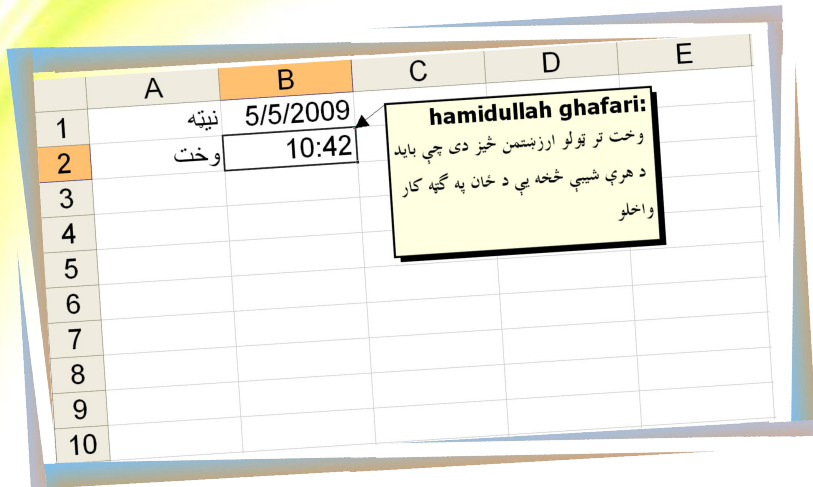 A B C D E
1 نيټه 5/5/2009
2 وخت 10:42
3
4
5
6
7
8
9
10
hamidullah ghafari:
وخت تر ټولو ارزښتمن څيز دی چې بايد
د هرې شيبې څخه يې د ځان په گټه کار
واخلو